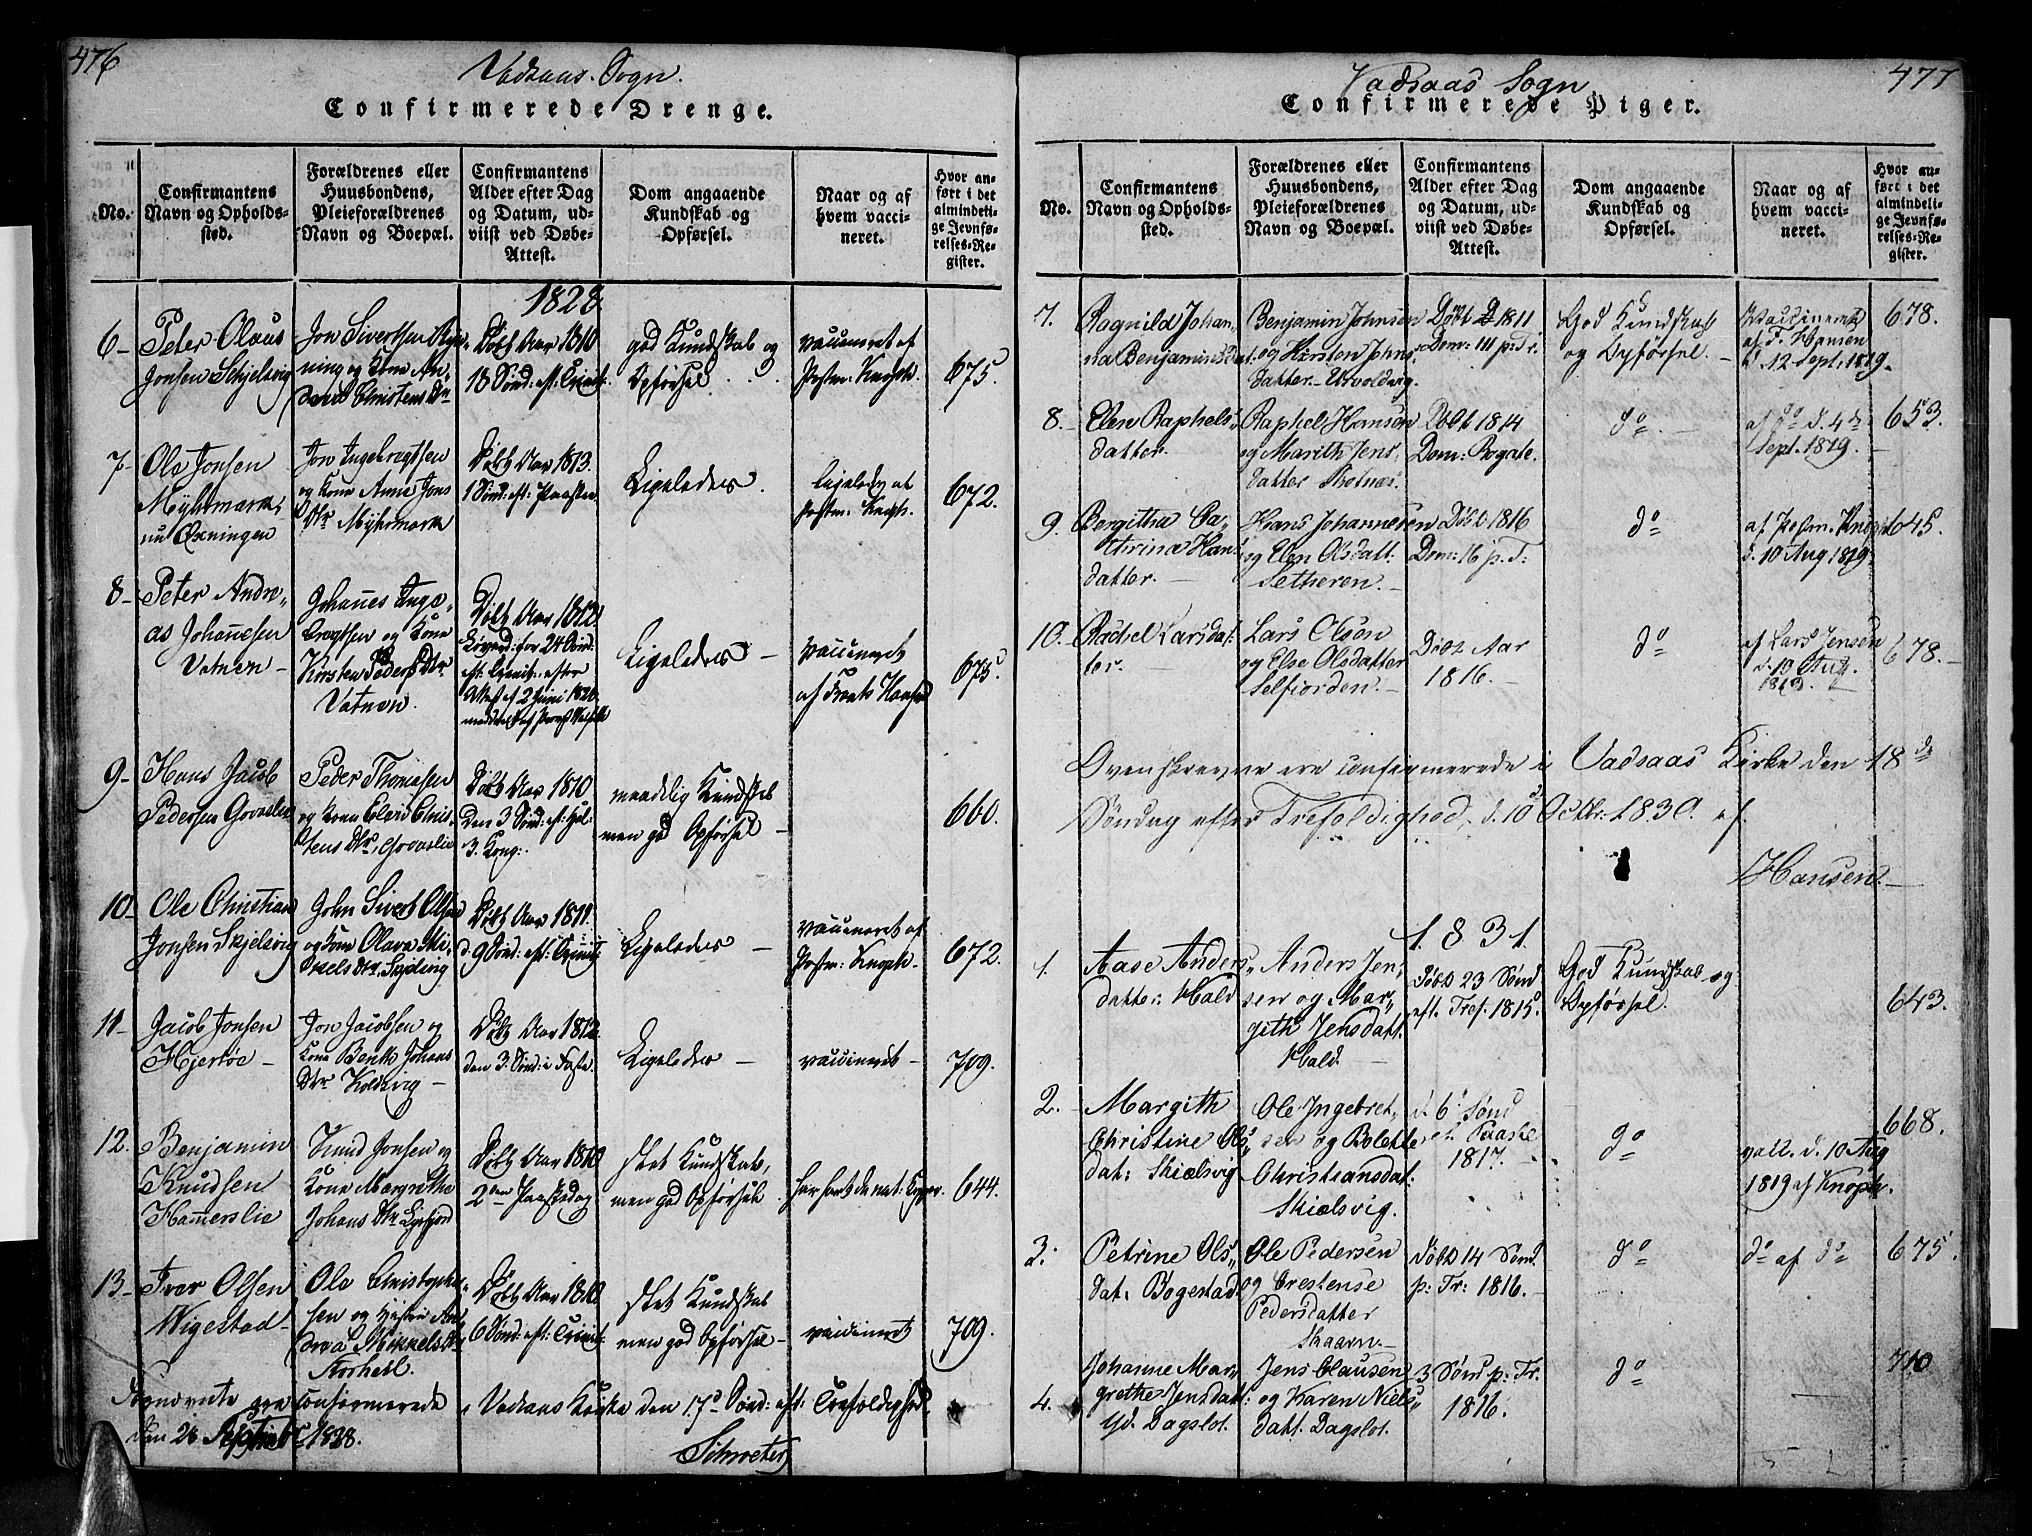 476
Vadsaas Sogn.
Confirmerede Drenge.
No.
Confirmantens
Navn og Opholds-
sted.
Forældrenes eller
Huusbondens,
Pleieforældrenes
Navn og Boepæl.
Confirmantens
Alder efter Dag
og Datum, ud-
viist ved Døbe-
Attest.
Dom angaaende
Kundskab og
Opførsel.
Naar og af
hvem vacci-
neret.
Hvor an-
ført i det
almindeli-
ge Jevnfø-
relses-Re-
gister.
1828
6
Peter Olaus
Jonsen Skjelsvig
Jon Sivertsen
og Kone An-
Christens
Døbt Aar 1810
18 Sønd: eft: Trinit:
god Kundskab og
Opførsel
vaccineret af
Postm: Knoph.
675.
7
Ole Jonsen
Myhrmark,
Jon Ingebrigtsen
og Kone Anne Jons
Dtr Myhrmark
Døbt Aar 1813.
1 Sønd: eft: Paaske
Ligeledes.
ligeled af
Postm: Knoph.
672.
8
Peter Andre,,
as Johannesen
Vatnen
Johannes Inge,,
brigtsen og Kone
Kirsten Peders Dtr
Vatnen.
Døbt Aar 1812
for 24 Sønd:
eft. Trinit: efter
Attest af 2 Juni 1820
Ligeledes
Vaccineret
af Hansen
675
9
Hans Jacob
Pedersen
Peder Thomesen
og Kone
Dtr,
Døbt Aar 1810
Den 3 Sønd: eft: Hel:
3. Kong:
maadelig Kundskab
men god Opførsel
660.
10
Ole Christian
Jonsen Skjelsvig
John Sivert Olsen
og Kone Olava Mi-
kels Dtr,
Døbt Aar 1811.
d. 9 Sønd: eft: Trinit:
Ligeledes
vaccineret af
Postm: Knoph
672.
11
Jacob Jonsen
Hjertøe
Jon Jacobsen og
Kone Berith Johans
Dtr Koldsvig
Døbt Aar 1812
den 3 Sønd: i Faste.
Ligeledes
vaccineret
709.
12.
Benjamin
Knudsen
Hamerslie
Knud Jonsen og
Kone Margrethe
Johans Dtr
Døbt Aar 1810
2den Paaskedag
slet Kundskab,
men god Opførsel
har havt de nat. Kopper.
644.
13
Iver Olsen
Wigestad
Ole Christophe
sen og
Mikkels
Storhell.
Døbt Aar 1810
6 Sønd: eft: Trinit:
slet Kundskab
men god Opførsel
vaccineret
709.
ere confirmerede i Vadsaas Kirke den 17d Sønd: eft: Trefoldighed,
den 28 Septbr 1828.
Schroeter
477
Vadsaas Sogn
Confirmerede Piger.
No.
Confirmantens
Navn og Opholds-
sted.
Forældrenes eller
Huusbondens,
Pleieforældrenes
Navn og Boepæl.
Confirmantens
Alder efter Dag
og Datum, ud-
viist ved Døbe-
Attest.
Dom angaaende
Kundskab og
Opførsel.
Naar og af
hvem vacci-
neret.
Hvor an-
ført i det
almindeli-
ge Jevnfø-
relses-Re-
gister.
7.
Ragnild Johan,,
na Benjaminsdat.
Benjamin Johnsen
og Kirsten Johns
datter Urvoldvig.
Døbt D 1811
Dom: III p: Tr.
God Kundskab
og Opførsel.
Vaccineret
af F. Hansen
d 12 Sept. 1819.
678.
8.
Elen Raphels
datter.
Raphel Hansen
og Marith Jens,
datter
Døbt 1814
Dom: Rogate.
do
af do d. 4de
Sept. 1819.
653.
9.
Bergitha Ca,,
thrina Hans
datter.
Hans Johannesen
og Elen Olsdatt.
Setheren.
Døbt 1816
Dom: 16 p. T.
do
af Postm. Knoph
d. 10 Aug 1819
645.
10.
Rachel Larsdat:
ter.
Lars Olson
og Else Olsdatter
Selfiorden.
Døbt Aar
1816.
do
af Lars Jensen
d. 10 Aug.
678.
Ovenskrevne ere confirmerede i Vadsaas Kirke den 18de
Søndag efter Trefoldighed, d. 10 Octbr: 1830 af
Hansen.
1831.
1.
Aase Anders,,
datter Hald
Anders Jen,,
sen og Mar,,
grith Jensdatt.
Hald.
Døbt 23 Sønd
eft. Tref. 1815.
God Kundskab og
Opførsel.
643.
2.
Margith
Christine Ols,,
dat: Skielsvig
Ole Ingebret,,
sen og Bolette
Christiansdat:
Skielsvig.
d. 6 Sønd
ef. Paaske
1817.
do
vacc. d. 10 Aug
1819 af Knoph.
668.
3.
Petrine Ols,,
dat: Bogestad
Ole Pedersen
og Crestense
Pedersdatter
Skaarn.
Døbt 14 Sønd.
p: Tr: 1816.
do
do af do
675.
4.
Johanne Mar,,
grethe Jensdatt:
Dagslot.
Jens Clausen
og Karen Niels,,
datt. Dagslot.
3 Sønd p: Tr.
1816.
do
710